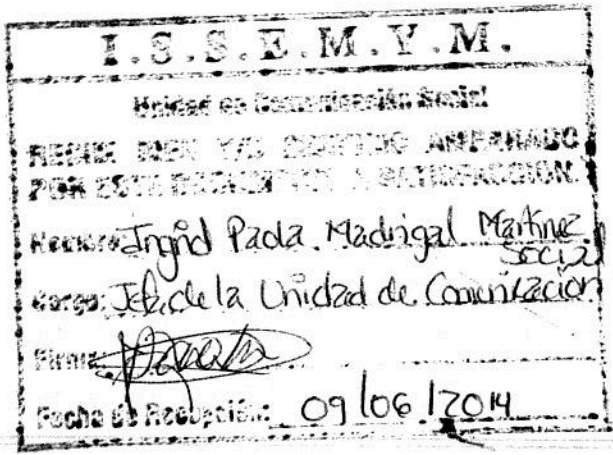 I.S.S.E.M.Y.M.
Unidad de Comunicación Social
RECIBI BIEN Y/O SERVICIO AMPARADO
POR ESTA A SATISFACCION.
Nombre: Ingrid Paola Madrigal Martinez
Cargo: Jefa de la Unidad de Comunicación Social
Firma:
Fecha de Recepción: 09/06/2014